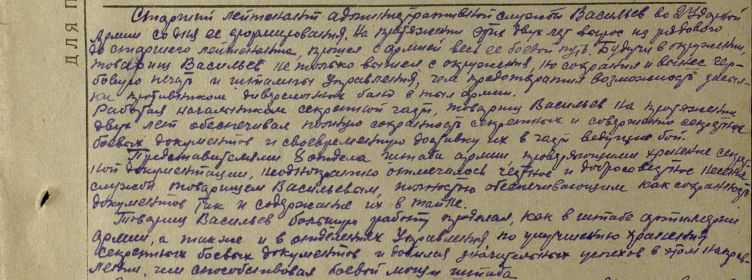 Старший лейтенант административной службы Васильев во 2 Ударной
Армии со дня ее формирования. На протяжении этих двух лет вырос из рядового
до старшего лейтенанта, прошел с армией весь ее боевой путь. Будучи в окружении,
товарищ Васильев не только вышел с окружения, но сохранил и вынес гер-
бовую печать и штампы Управления, чем предотвратил возможность
противником диверсионных в тыл армии.
Работая начальником секретной части, товарищ Васильев на протяжении
двух лет обеспечивал полную сохранность секретных и совершенно секретных
боевых документов и своевременную доставку их в части ведущие бой.
Представителями 8 отдела штаба армии, проверяющими хранение секрет-
ной документации, неоднократно отмечалось честное и добросовестное несение
службы товарищем Васильевым, полностью обеспечивающим как сохранность
документов так и содержание их в тайне.
Товарищ Васильев большую работу проделал, как в штабе артиллерии
армии, а также и в отделениях Управления, по улучшению хранения
секретных боевых документов и добился значительных успехов в этом направ-
лении, чем способствовал боевой мощи штаба
ДЛЯ П